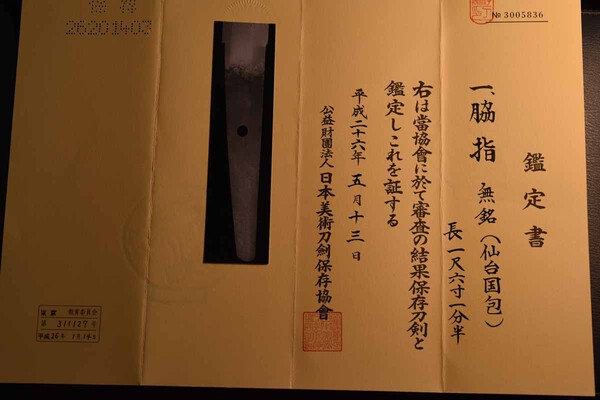 № 3005836
鑑定書
一、脇指 無銘(仙台国包)
長一尺六寸一分半
右は當協會に於て審査の結果保存刀剣と
鑑定しこれを証する
平成二十六年五月十三日
公益財團法人日本美術刀劍保存協會
保存
26201403
第 311127 号
平成26年1月14日